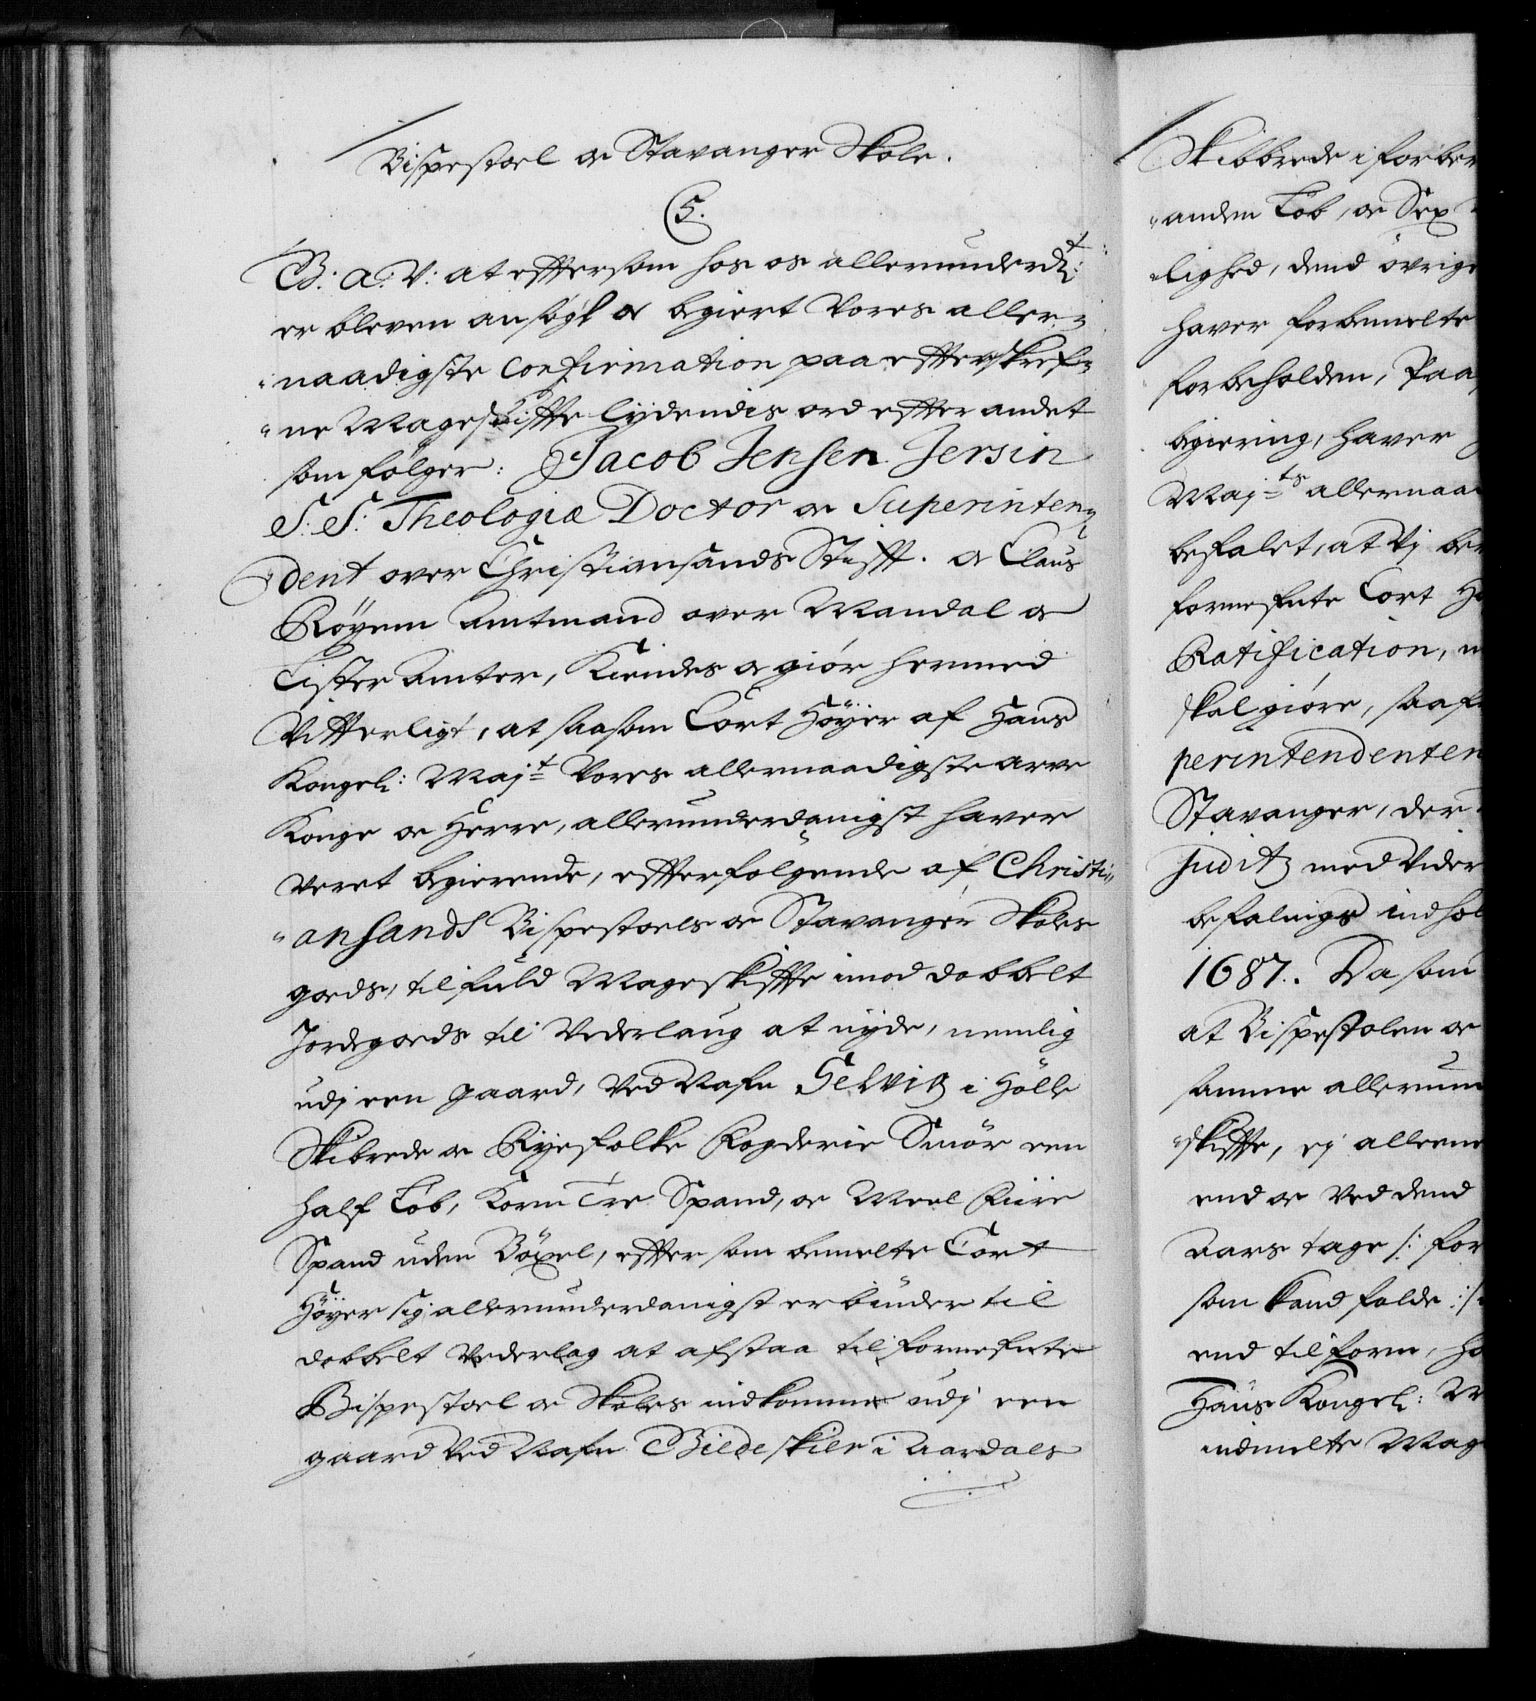 Bispestoel oc Stavanger Skole.
C5.
G: a: V: at effter som hos os allerunderd:t
er bleven ansøgt oc begiert Vores aller-
naadigste Confirmation paa effterskref-
ne Mageskiffte lydendis ord effter andet
som følger: Jacob Jensen Jersin
S: S: Theologiæ Doctor oc Superinten-
dent over Christiansands Stifft. oc Claus
Röyem Amtmand over Mandal oc
Lister Amter, Kiendes oc giör hermed
Vitterligt, at saasom Cort Höyer af Hans
Kongel: Maj:t Vores allernaadigste arve
Konge oc Herre, allerunderdanigst haver
veret begierende, effterfølgende af Christi-
ansands Bispestoels oc Stavanger Skoles
goeds, til fuld Mageskiffte imod dobbelt
Jordegoeds til Vederlaug at nyde, nemlig
udj een gaard, Ved Nafn Selvig i Hölle
Skibrede oc Ryefolke Fogderie Smör een
half Løb, Korn Tre Spand, oc Meel Fiire
Spand uden Böxel, effter som bemelte Cort
Höyer sig allerunderdanigst erbinder til
dobbelt Vederlag at afstaa til forne
Bispestoel oc Skoles indkomme udj een
gaard Ved Nafn Bildeskier i Aardals
Skibbrede i forber
anden Løb, oc Sex
lighed, dend övrige
haver forbemelte
forbeholden, Paa
begiering, haver
Maj:ts allernaa
befalet, at Vj be
Cort Hö
Ratification, m
skal giøre, saa
perintendenten
Stavanger, der
juditz med Vider
befalings indhol
1687. Da som
at Bispestolen oc
samme allerun
skiffte, ej alleene
end oc Ved dend
Aars tage /: for
som kand falde :/
end tilforn, ha
Hans Kongel: M
indmelte Mag